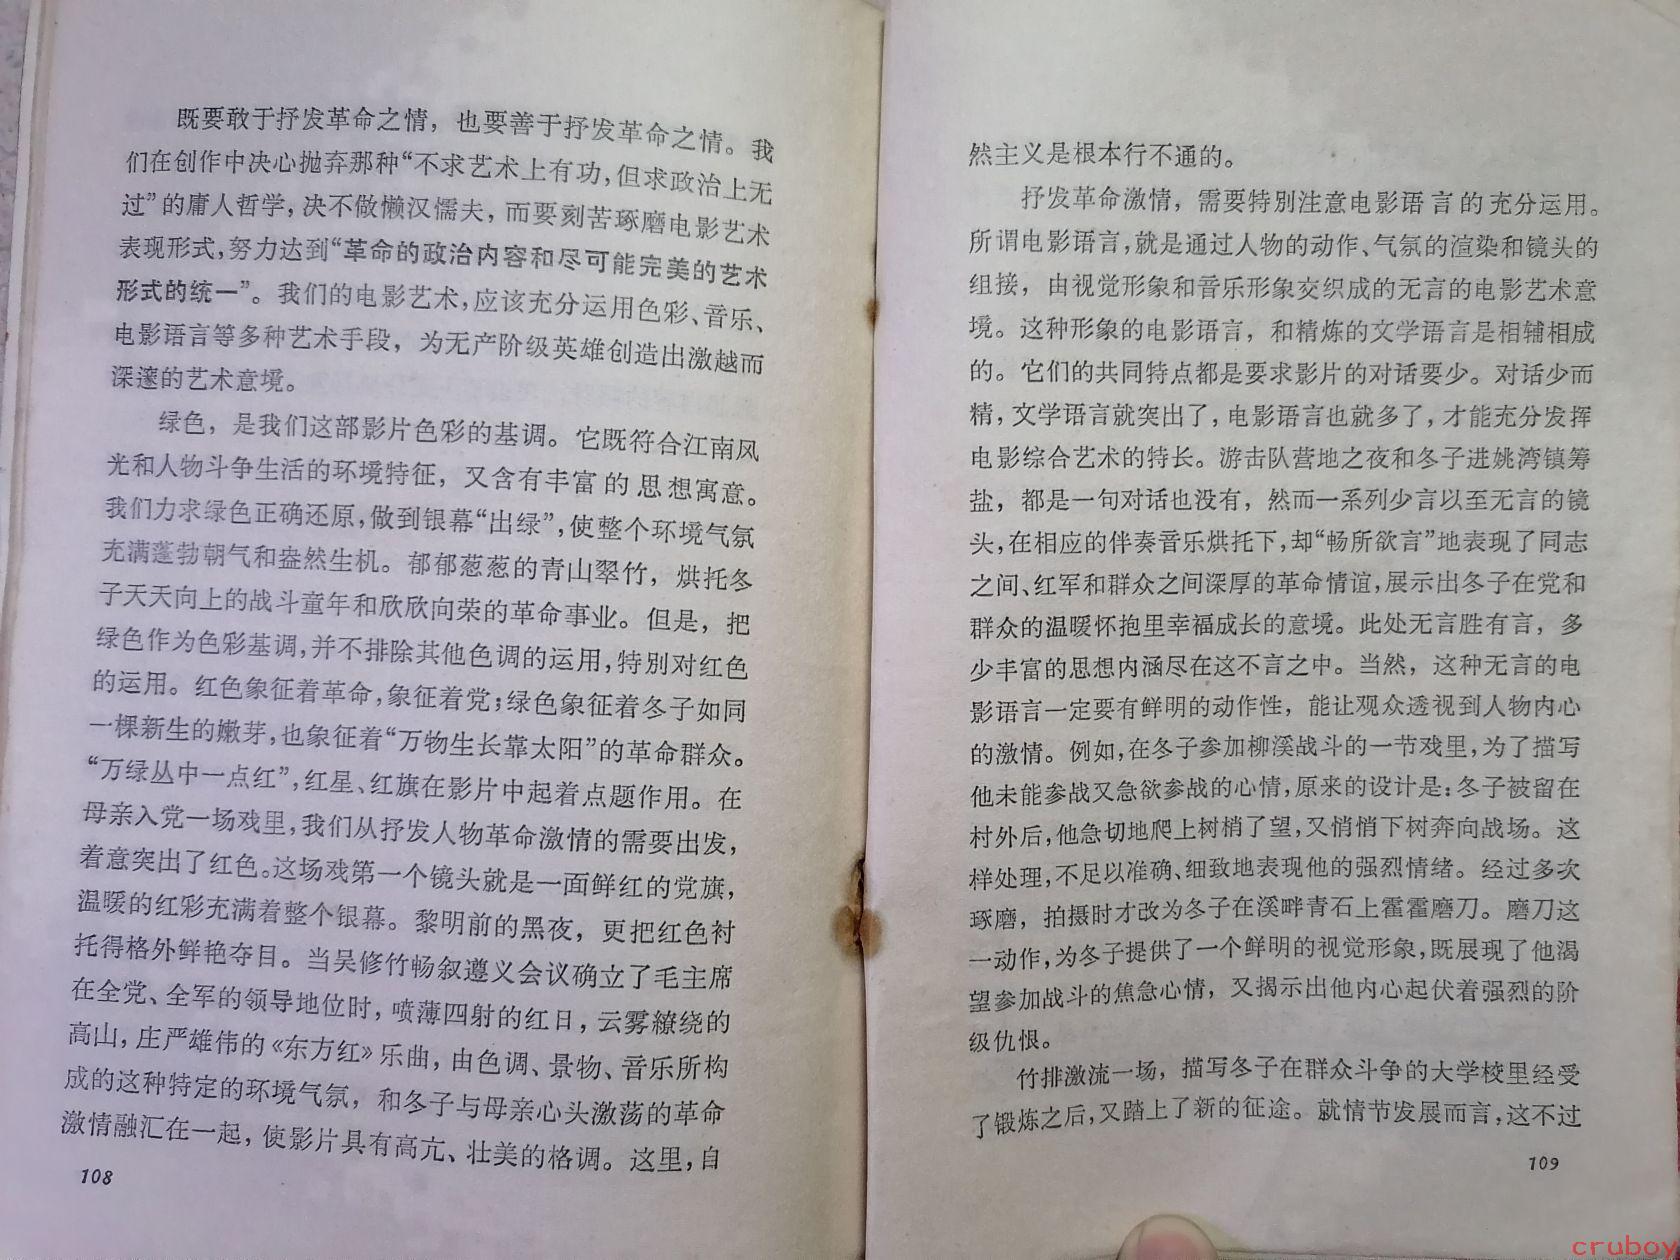 既要敢于抒发革命之情，也要善于抒发革命之情。我
们在创作中决心抛弃那种“不求艺术上有功，但求政治上无
过”的庸人哲学，决不做懒汉懦夫，而要刻苦琢磨电影艺术
表现形式，努力达到“革命的政治内容和尽可能完美的艺术
形式的统一”。我们的电影艺术，应该充分运用色彩、音乐、
电影语言等多种艺术手段，为无产阶级英雄创造出激越而
深邃的艺术意境。
绿色，是我们这部影片色彩的基调。它既符合江南风
光和人物斗争生活的环境特征，又含有丰富的思想寓意。
我们力求绿色正确还原，做到银幕“出绿”，使整个环境气氛
充满蓬勃朝气和盎然生机。郁郁葱葱的青山翠竹，烘托冬
子天天向上的战斗童年和欣欣向荣的革命事业。但是，把
绿色作为色彩基调，并不排除其他色调的运用，特别对红色
的运用。红色象征着革命，象征着党；绿色象征着冬子如同
一棵新生的嫩芽，也象征着“万物生长靠太阳”的革命群众。
“万绿丛中一点红”，红星、红旗在影片中起着点题作用。在
母亲入党一场戏里，我们从抒发人物革命激情的需要出发，
着意突出了红色。这场戏第一个镜头就是一面鲜红的党旗，
温暖的红彩充满着整个银幕。黎明前的黑夜，更把红色衬
托得格外鲜艳夺目。当吴修竹畅叙遵义会议确立了毛主席
在全党、全军的领导地位时，喷薄四射的红日，云雾缭绕的
高山，庄严雄伟的《东方红》乐曲，由色调、景物、音乐所构
成的这种特定的环境气氛，和冬子与母亲心头激荡的革命
激情融汇在一起，使影片具有高亢、壮美的格调。这里，自
108
然主义是根本行不通的。
抒发革命激情，需要特别注意电影语言的充分运用。
所谓电影语言，就是通过人物的动作、气氛的渲染和镜头的
组接，由视觉形象和音乐形象交织成的无言的电影艺术意
境。这种形象的电影语言，和精炼的文学语言是相辅相成
的。它们的共同特点都是要求影片的对话要少。对话少而
精，文学语言就突出了，电影语言也就多了，才能充分发挥
电影综合艺术的特长。游击队营地之夜和冬子进姚湾镇筹
盐，都是一句对话也没有，然而一系列少言以至无言的镜
头，在相应的伴奏音乐烘托下，却“畅所欲言”地表现了同志
之间、红军和群众之间深厚的革命情谊，展示出冬子在党和
群众的温暖怀抱里幸福成长的意境。此处无言胜有言，多
少丰富的思想内涵尽在这不言之中。当然，这种无言的电
影语言一定要有鲜明的动作性，能让观众透视到人物内心
的激情。例如，在冬子参加柳溪战斗的一节戏里，为了描写
他未能参战又急欲参战的心情，原来的设计是：冬子被留在
村外后，他急切地爬上树梢了望，又悄悄下树奔向战场。这
样处理，不足以准确、细致地表现他的强烈情绪。经过多次
琢磨，拍摄时才改为冬子在溪畔青石上霍霍磨刀。磨刀这
一动作，为冬子提供了一个鲜明的视觉形象，既展现了他渴
望参加战斗的焦急心情，又揭示出他内心起伏着强烈的阶
级仇恨。
竹排激流一场，描写冬子在群众斗争的大学校里经受
了锻炼之后，又踏上了新的征途。就情节发展而言，这不过
109
cruboy